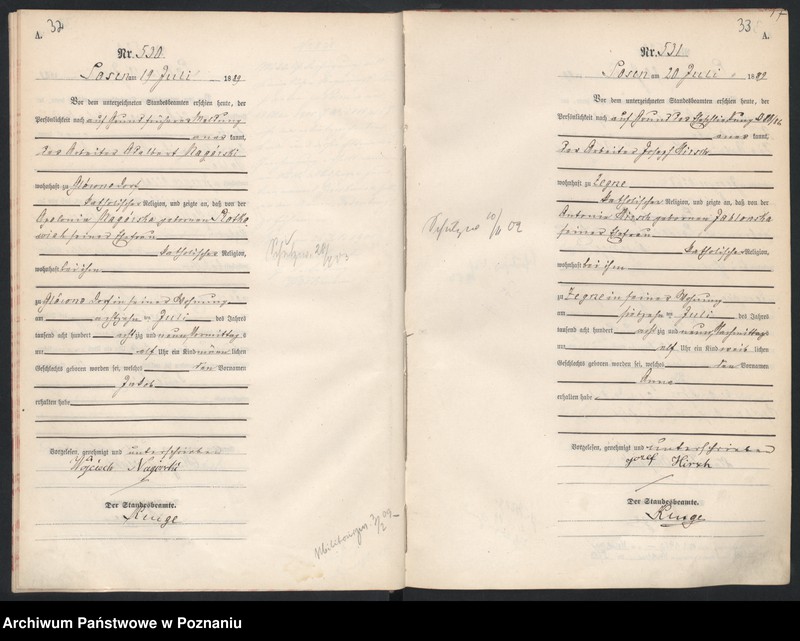 32
A.
Nr. 530
Posen am 19 Juli 1889
Vor dem unterzeichneten Standesbeamten erschien heute, der
Persönlichkeit nach auf Grund früherer Meldung
anerkannt,
der Arbeiter Adalbert Nagórski
wohnhaft zu Główno Dorf
katholischer Religion, und zeigte an, daß von der
Apolonia Nagórska geborenen
seiner Ehefrau
katholischer Religion,
wohnhaft bei ihm
zu Główno Dorf in seiner Wohnung
am achtzehnten Juli des Jahres
tausend acht hundert achtzig und neun Vormittags
um elf Uhr ein Kind männlichen
Geschlechts geboren worden sei, welches den Vornamen
Jakob
erhalten habe
Vorgelesen, genehmigt und unterschrieben
Wojciech Nagórski
Der Standesbeamte.
Runge
33
A.
Nr. 531
Posen am 20 Juli 1889
Vor dem unterzeichneten Standesbeamten erschien heute, der
Persönlichkeit nach auf Grund der Eheschließung
anerkannt,
der Arbeiter Joseph Hirsch
wohnhaft zu Zegrze
katholischer Religion, und zeigte an, daß von der
Antonia Hirsch geborenen Jablonska
seiner Ehefrau
katholischer Religion,
wohnhaft bei ihm
zu Zegrze in seiner Wohnung
am Juli des Jahres
tausend acht hundert achtzig und neun Nachmittags
um elf Uhr ein Kind weiblichen
Geschlechts geboren worden sei, welches den Vornamen
Anna
erhalten habe
Vorgelesen, genehmigt und unterschrieben
Jozef Hirsch
Der Standesbeamte.
Runge
Archiwum Państwowe w Poznaniu